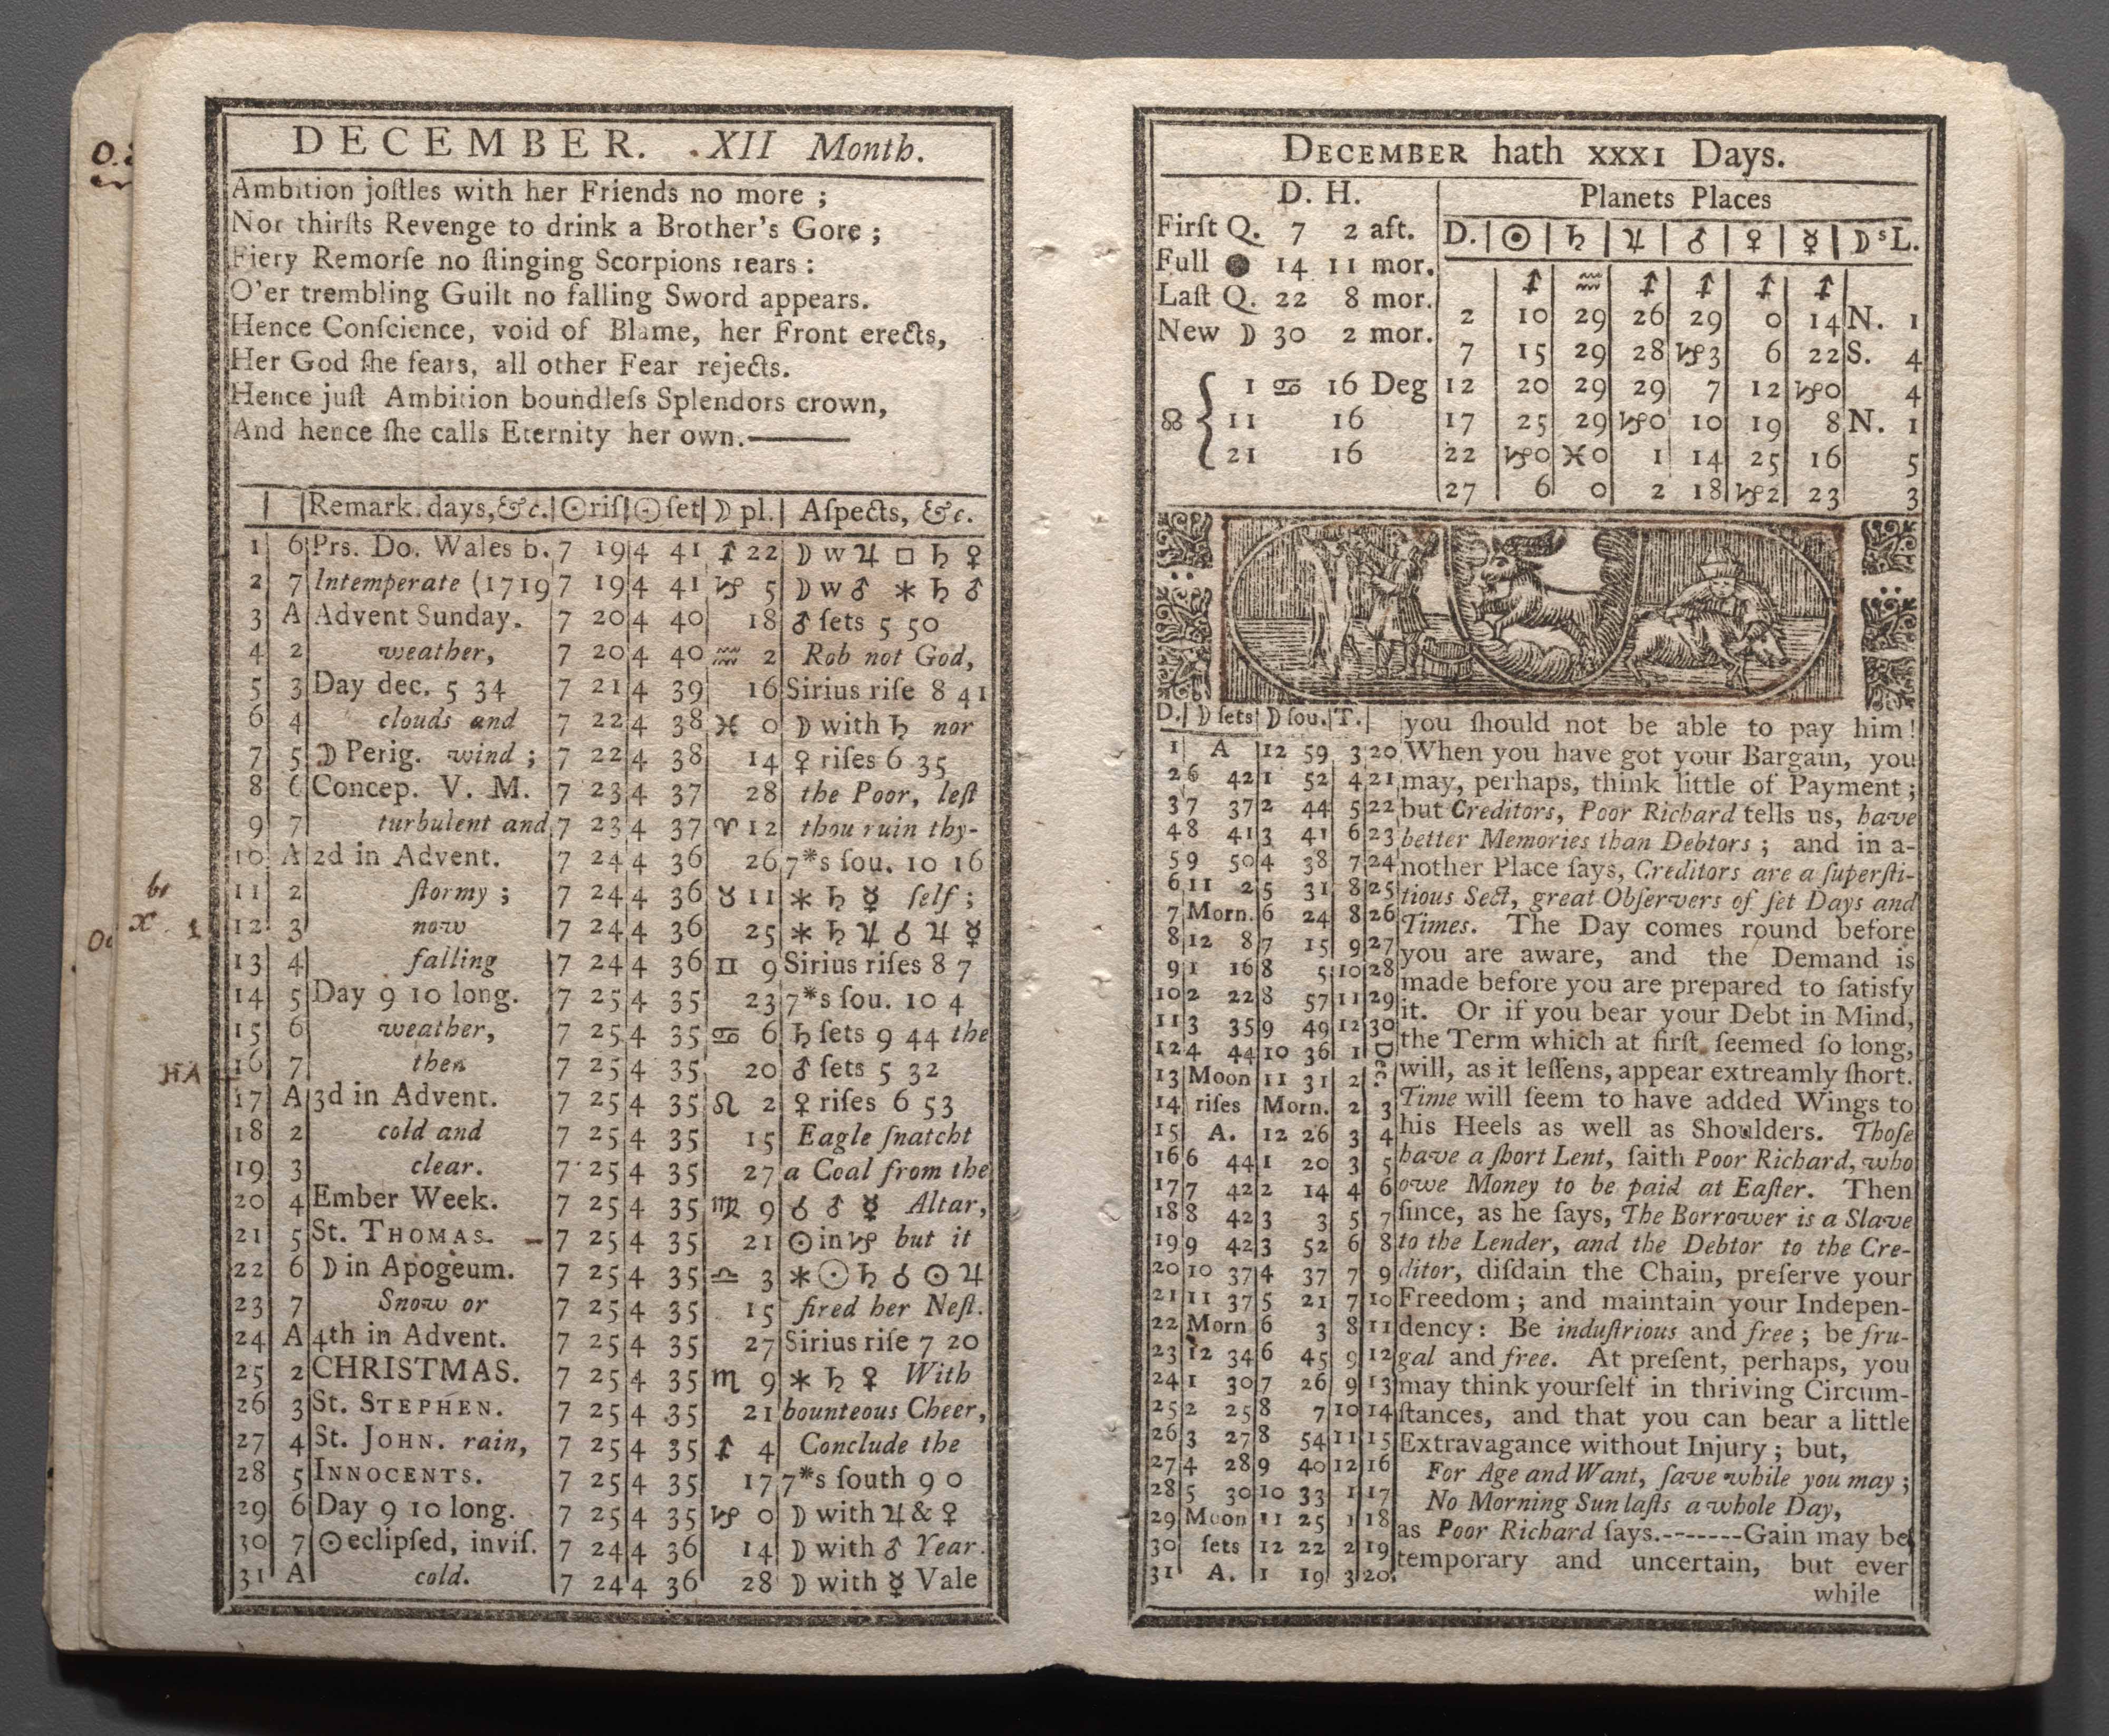 DECEMBER. XII Month.
Ambition joſtles with her Friends no more ;
Nor thirſts Revenge to drink a Brother's Gore ;
Fiery Remorſe no ſtinging Scorpions rears :
O'er trembling Guilt no falling Sword appears.
Hence Conſcience, void of Blame, her Front erects,
Her God ſhe fears, all other Fear rejects.
Hence juſt Ambition boundleſs Splendors crown,
And hence ſhe calls Eternity her own.———
Remark. days, &c. ☉riſ ☉ſet ☽ pl. Aſpects, &c.
1 6 Prs. Do. Wales b. 7 19 4 41 ♐ 22 ☽ w ♃ □ ♄ ♀
2 7 Intemperate (1719 7 19 4 41 ♑ 5 ☽ w ♂ ⚹ ♄ ♂
3 A Advent Sunday. 7 20 4 40 18 ♂ ſets 5 50
4 2 weather, 7 20 4 40 ♒ 2 Rob not God,
5 3 Day dec. 5 34 7 21 4 39 16 Sirius riſe 8 41
6 4 clouds and 7 22 4 38 ♓ 0 ☽ with ♄ nor
7 5 ☽ Perig. wind ; 7 22 4 38 14 ♀ riſes 6 35
8 6 Concep. V. M. 7 23 4 37 28 the Poor, leſt
9 7 turbulent and 7 23 4 37 ♈ 12 thou ruin thy-
10 A 2d in Advent. 7 24 4 36 26 7*s ſou. 10 16
11 2 ſtormy ; 7 24 4 36 ♉ 11 ⚹ ♄ ☿ ſelf ;
12 3 now 7 24 4 36 25 ⚹ ♄ ♃ ☌ ♃ ☿
13 4 falling 7 24 4 36 ♊ 9 Sirius riſes 8 7
14 5 Day 9 10 long. 7 25 4 35 23 7*s ſou. 10 4
15 6 weather, 7 25 4 35 ♋ 6 ♄ ſets 9 44 the
16 7 then 7 25 4 35 20 ♂ ſets 5 32
17 A 3d in Advent. 7 25 4 35 ♌ 2 ♀ riſes 6 53
18 2 cold and 7 25 4 35 15 Eagle ſnatcht
19 3 clear. 7 25 4 35 27 a Coal from the
20 4 Ember Week. 7 25 4 35 ♍ 9 ☌ ♂ ☿ Altar,
21 5 St. THOMAS. 7 25 4 35 21 ☉ in ♑ but it
22 6 ☽ in Apogeum. 7 25 4 35 ♎ 3 ⚹ ☉ ♄ ☌ ☉ ♃
23 7 Snow or 7 25 4 35 15 fired her Neſt.
24 A 4th in Advent. 7 25 4 35 27 Sirius riſe 7 20
25 2 CHRISTMAS. 7 25 4 35 ♏ 9 ⚹ ♄ ♀ With
26 3 St. STEPHEN. 7 25 4 35 21 bounteous Cheer,
27 4 St. JOHN. rain, 7 25 4 35 ♐ 4 Conclude the
28 5 INNOCENTS. 7 25 4 35 17 7*s ſouth 9 0
29 6 Day 9 10 long. 7 25 4 35 ♑ 0 ☽ with ♃ & ♀
30 7 ☉eclipſed, inviſ. 7 24 4 36 14 ☽ with ♂ Year.
31 A cold. 7 24 4 36 28 ☽ with ☿ Vale
DECEMBER hath XXXI Days.
D. H.
Firſt Q. 7 2 aft.
Full ● 14 11 mor.
Laſt Q. 22 8 mor.
New ☽ 30 2 mor.
☊ { 1 ♋ 16 Deg
11 16
21 16
Planets Places
D. ☉ ♄ ♃ ♂ ♀ ☿ ☽sL.
♐ ♒ ♐ ♐ ♐ ♐
2 10 29 26 29 0 14 N. 1
7 15 29 28 ♑3 6 22 S. 4
12 20 29 29 7 12 ♑0 4
17 25 29 ♑0 10 19 8 N. 1
22 ♑0 ♓0 1 14 25 16 5
27 6 0 2 18 ♑2 23 3
D. ☽ ſets ☽ ſou. T.
1 A 12 59 3 20
2 6 42 1 52 4 21
3 7 37 2 44 5 22
4 8 41 3 41 6 23
5 9 50 4 38 7 24
6 11 2 5 31 8 25
7 Morn. 6 24 8 26
8 12 8 7 15 9 27
9 1 16 8 5 10 28
10 2 22 8 57 11 29
11 3 35 9 49 12 30
12 4 44 10 36 1 Dec.
13 Moon 11 31 2
14 riſes Morn. 2 3
15 A. 12 26 3 4
16 6 44 1 20 3 5
17 7 42 2 14 4 6
18 8 42 3 3 5 7
19 9 42 3 52 6 8
20 10 37 4 37 7 9
21 11 37 5 21 7 10
22 Morn 6 3 8 11
23 12 34 6 45 9 12
24 1 30 7 26 9 13
25 2 25 8 7 10 14
26 3 27 8 54 11 15
27 4 28 9 40 12 16
28 5 30 10 33 1 17
29 Moon 11 25 1 18
30 ſets 12 22 2 19
31 A. 1 19 3 20.
you ſhould not be able to pay him!
When you have got your Bargain, you
may, perhaps, think little of Payment ;
but Creditors, Poor Richard tells us, have
better Memories than Debtors ; and in a-
nother Place ſays, Creditors are a ſuperſti-
tious Sect, great Obſervers of ſet Days and
Times. The Day comes round before
you are aware, and the Demand is
made before you are prepared to ſatisfy
it. Or if you bear your Debt in Mind,
the Term which at firſt ſeemed ſo long,
will, as it leſſens, appear extreamly ſhort.
Time will ſeem to have added Wings to
his Heels as well as Shoulders. Thoſe
have a ſhort Lent, ſaith Poor Richard, who
owe Money to be paid at Eaſter. Then
ſince, as he ſays, The Borrower is a Slave
to the Lender, and the Debtor to the Cre-
ditor, diſdain the Chain, preſerve your
Freedom ; and maintain your Indepen-
dency : Be induſtrious and free ; be fru-
gal and free. At preſent, perhaps, you
may think yourſelf in thriving Circum-
ſtances, and that you can bear a little
Extravagance without Injury ; but,
For Age and Want, ſave while you may ;
No Morning Sun laſts a whole Day,
as Poor Richard ſays.-------Gain may be
temporary and uncertain, but ever
while